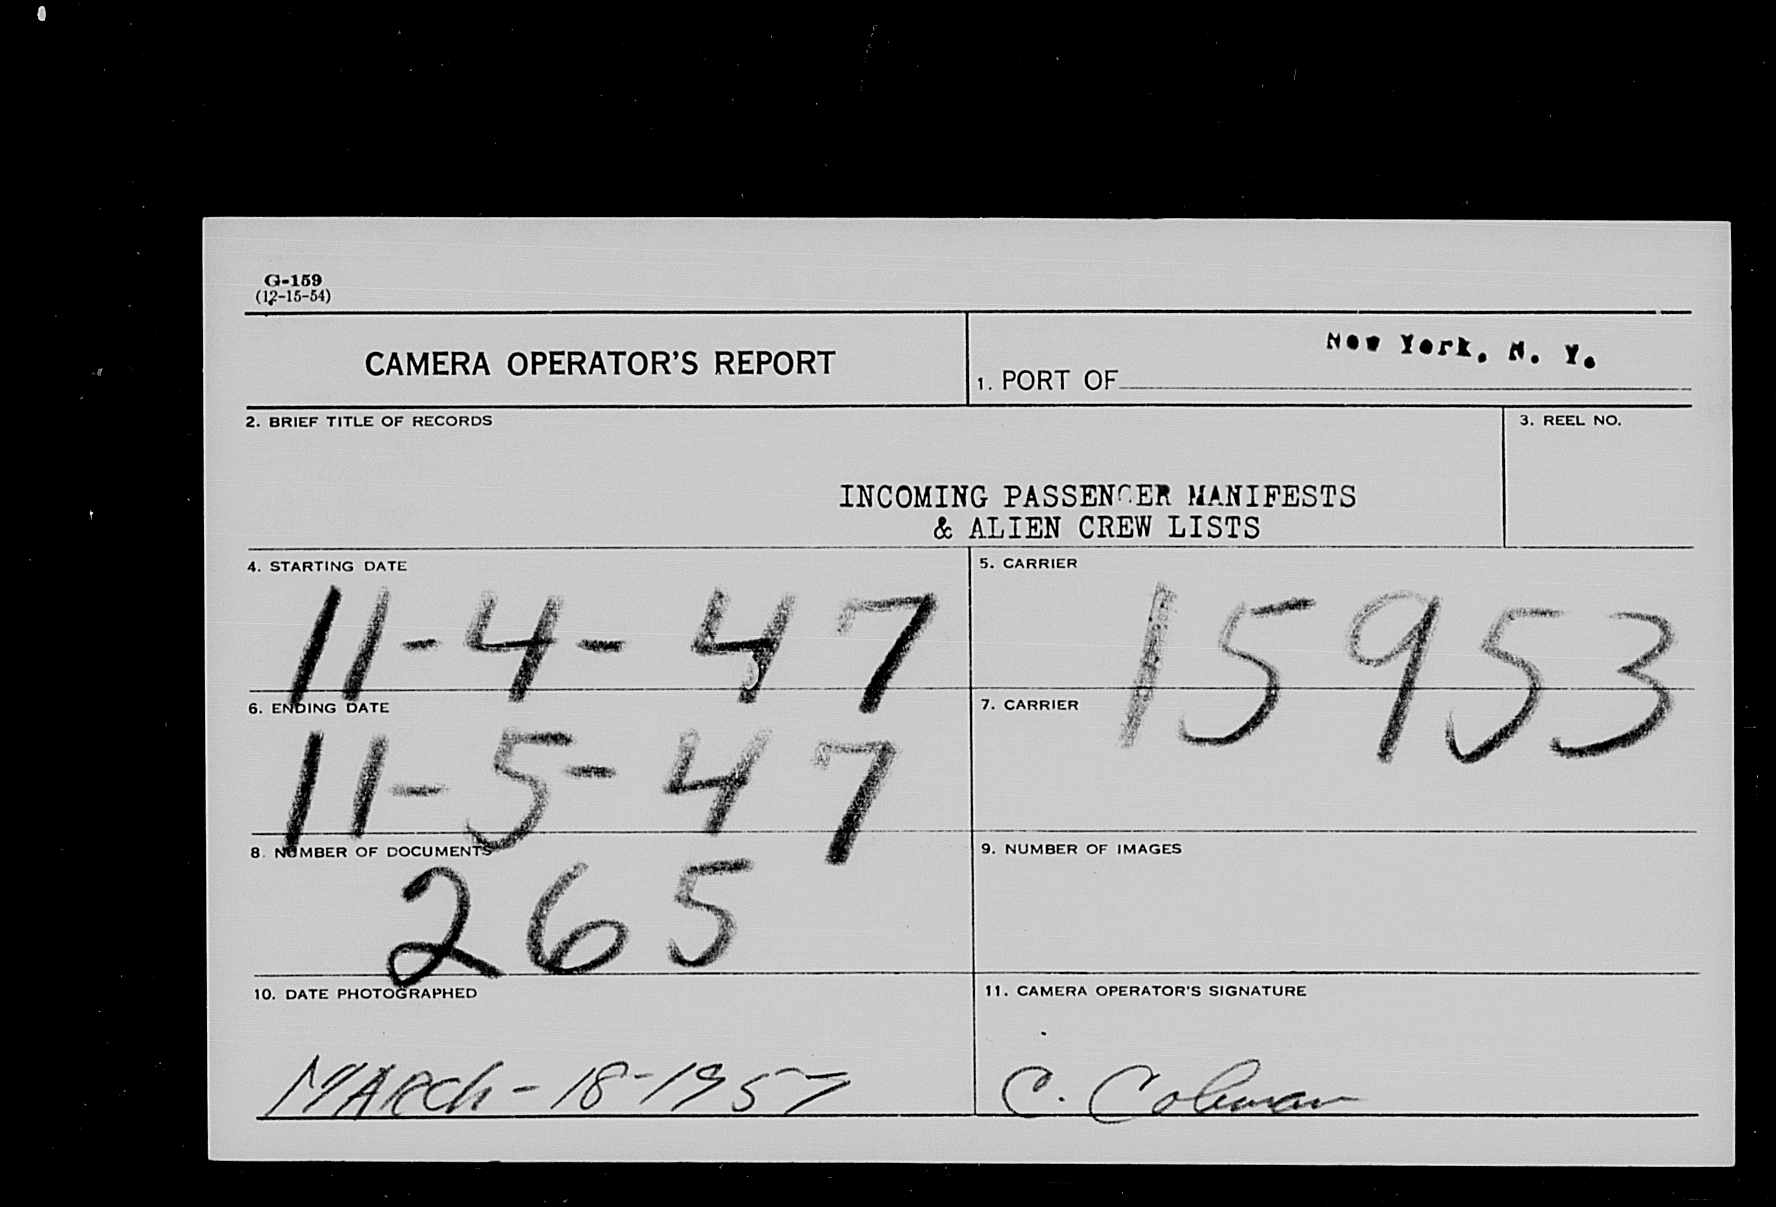 G-159
(12-15-54)
CAMERA OPERATOR'S REPORT
1. PORT OF New York, N. Y.
2. BRIEF TITLE OF RECORDS
3. REEL NO.
INCOMING PASSENGER MANIFESTS
& ALIEN CREW LISTS
4. STARTING DATE
11-4-47
5. CARRIER
15953
6. ENDING DATE
11-5-47
7. CARRIER
8. NUMBER OF DOCUMENTS
265
9. NUMBER OF IMAGES
10. DATE PHOTOGRAPHED
MARCh-18-1957
11. CAMERA OPERATOR'S SIGNATURE
C. Colman